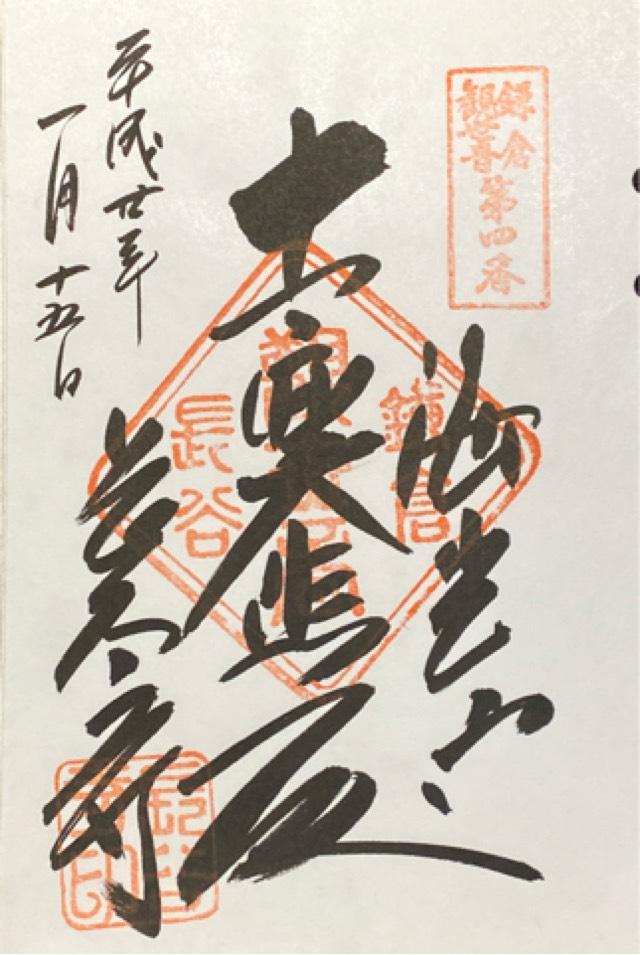 鎌倉
観世音
第四番
海光山
十一面大悲殿
長谷寺
平成廿三年
一月十五日
鎌倉
観世音
長谷
長谷
寺印